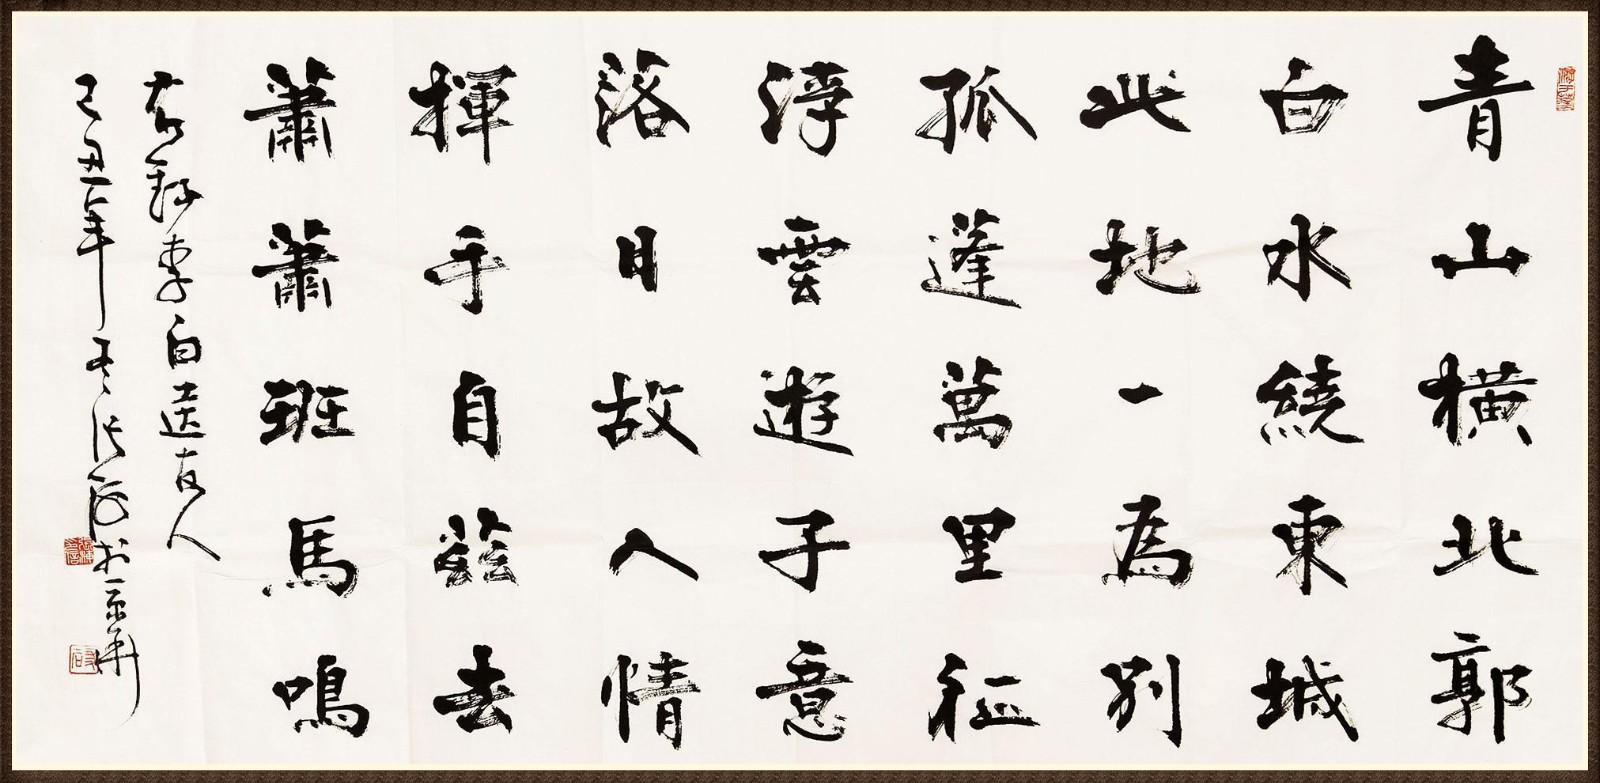 青山橫北郭
白水繞東城
此地一為別
孤蓬萬里征
浮雲遊子意
落日故人情
揮手自茲去
蕭蕭班馬鳴
右錄李白送友人
己丑年於京華